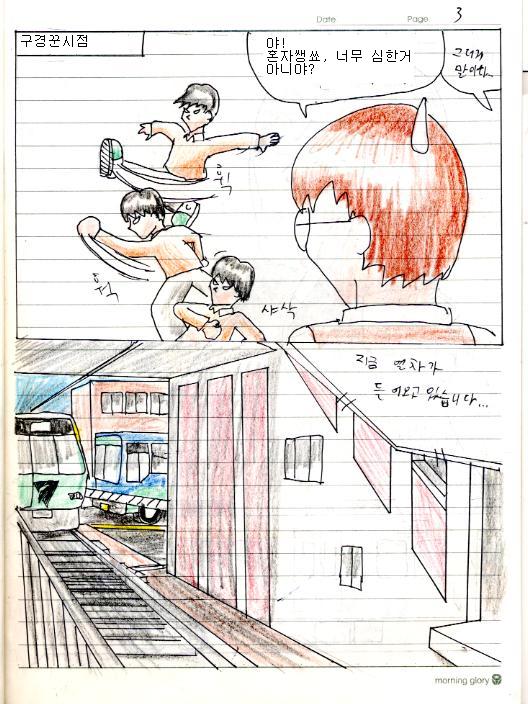 Date
Page 3
구경꾼시점
야!
혼자쌩쑈, 너무 심한거
아니야?
그러게
말이다..
휙
휙
샤삭
지금 열차가
들어오고 있습니다...
morning glory